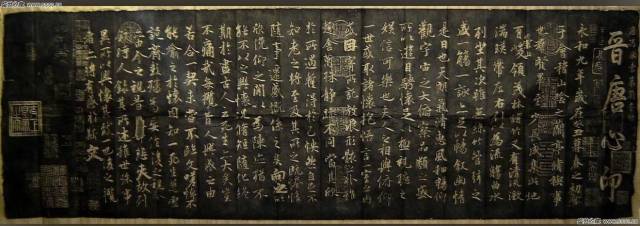 晉唐心印
永和九年歲在癸丑暮春之初會
于會稽山陰之蘭亭脩稧事
也群賢畢至少長咸集此地
有峻領茂林脩竹又有清流激
湍暎帶左右引以為流觴曲水
列坐其次雖無絲竹管弦之
盛一觴一詠亦足以暢敘幽情
是日也天朗氣清惠風和暢仰
觀宇宙之大俯察品類之盛
所以遊目騁懷足以極視聽之
娛信可樂也夫人之相與俯仰
一世或取諸懷抱悟言一室之內
或因寄所託放浪形骸之外雖
趣舍萬殊靜躁不同當其欣
於所遇暫得於己怏然自足不
知老之將至及其所之既惓情
隨事遷感慨係之矣向之所欣
俛仰之間以為陳迹猶不
能不以之興懷況脩短隨化終
期於盡古人云死生亦大矣豈
不痛哉每攬昔人興感之由
若合一契未嘗不臨文嗟悼不
能喻之於懷固知一死生為虛
誕齊彭殤為妄作後之視今
亦由今之視昔悲夫故列
敘時人錄其所述雖世殊事
異所以興懷其致一也後之攬
者亦將有感於斯文